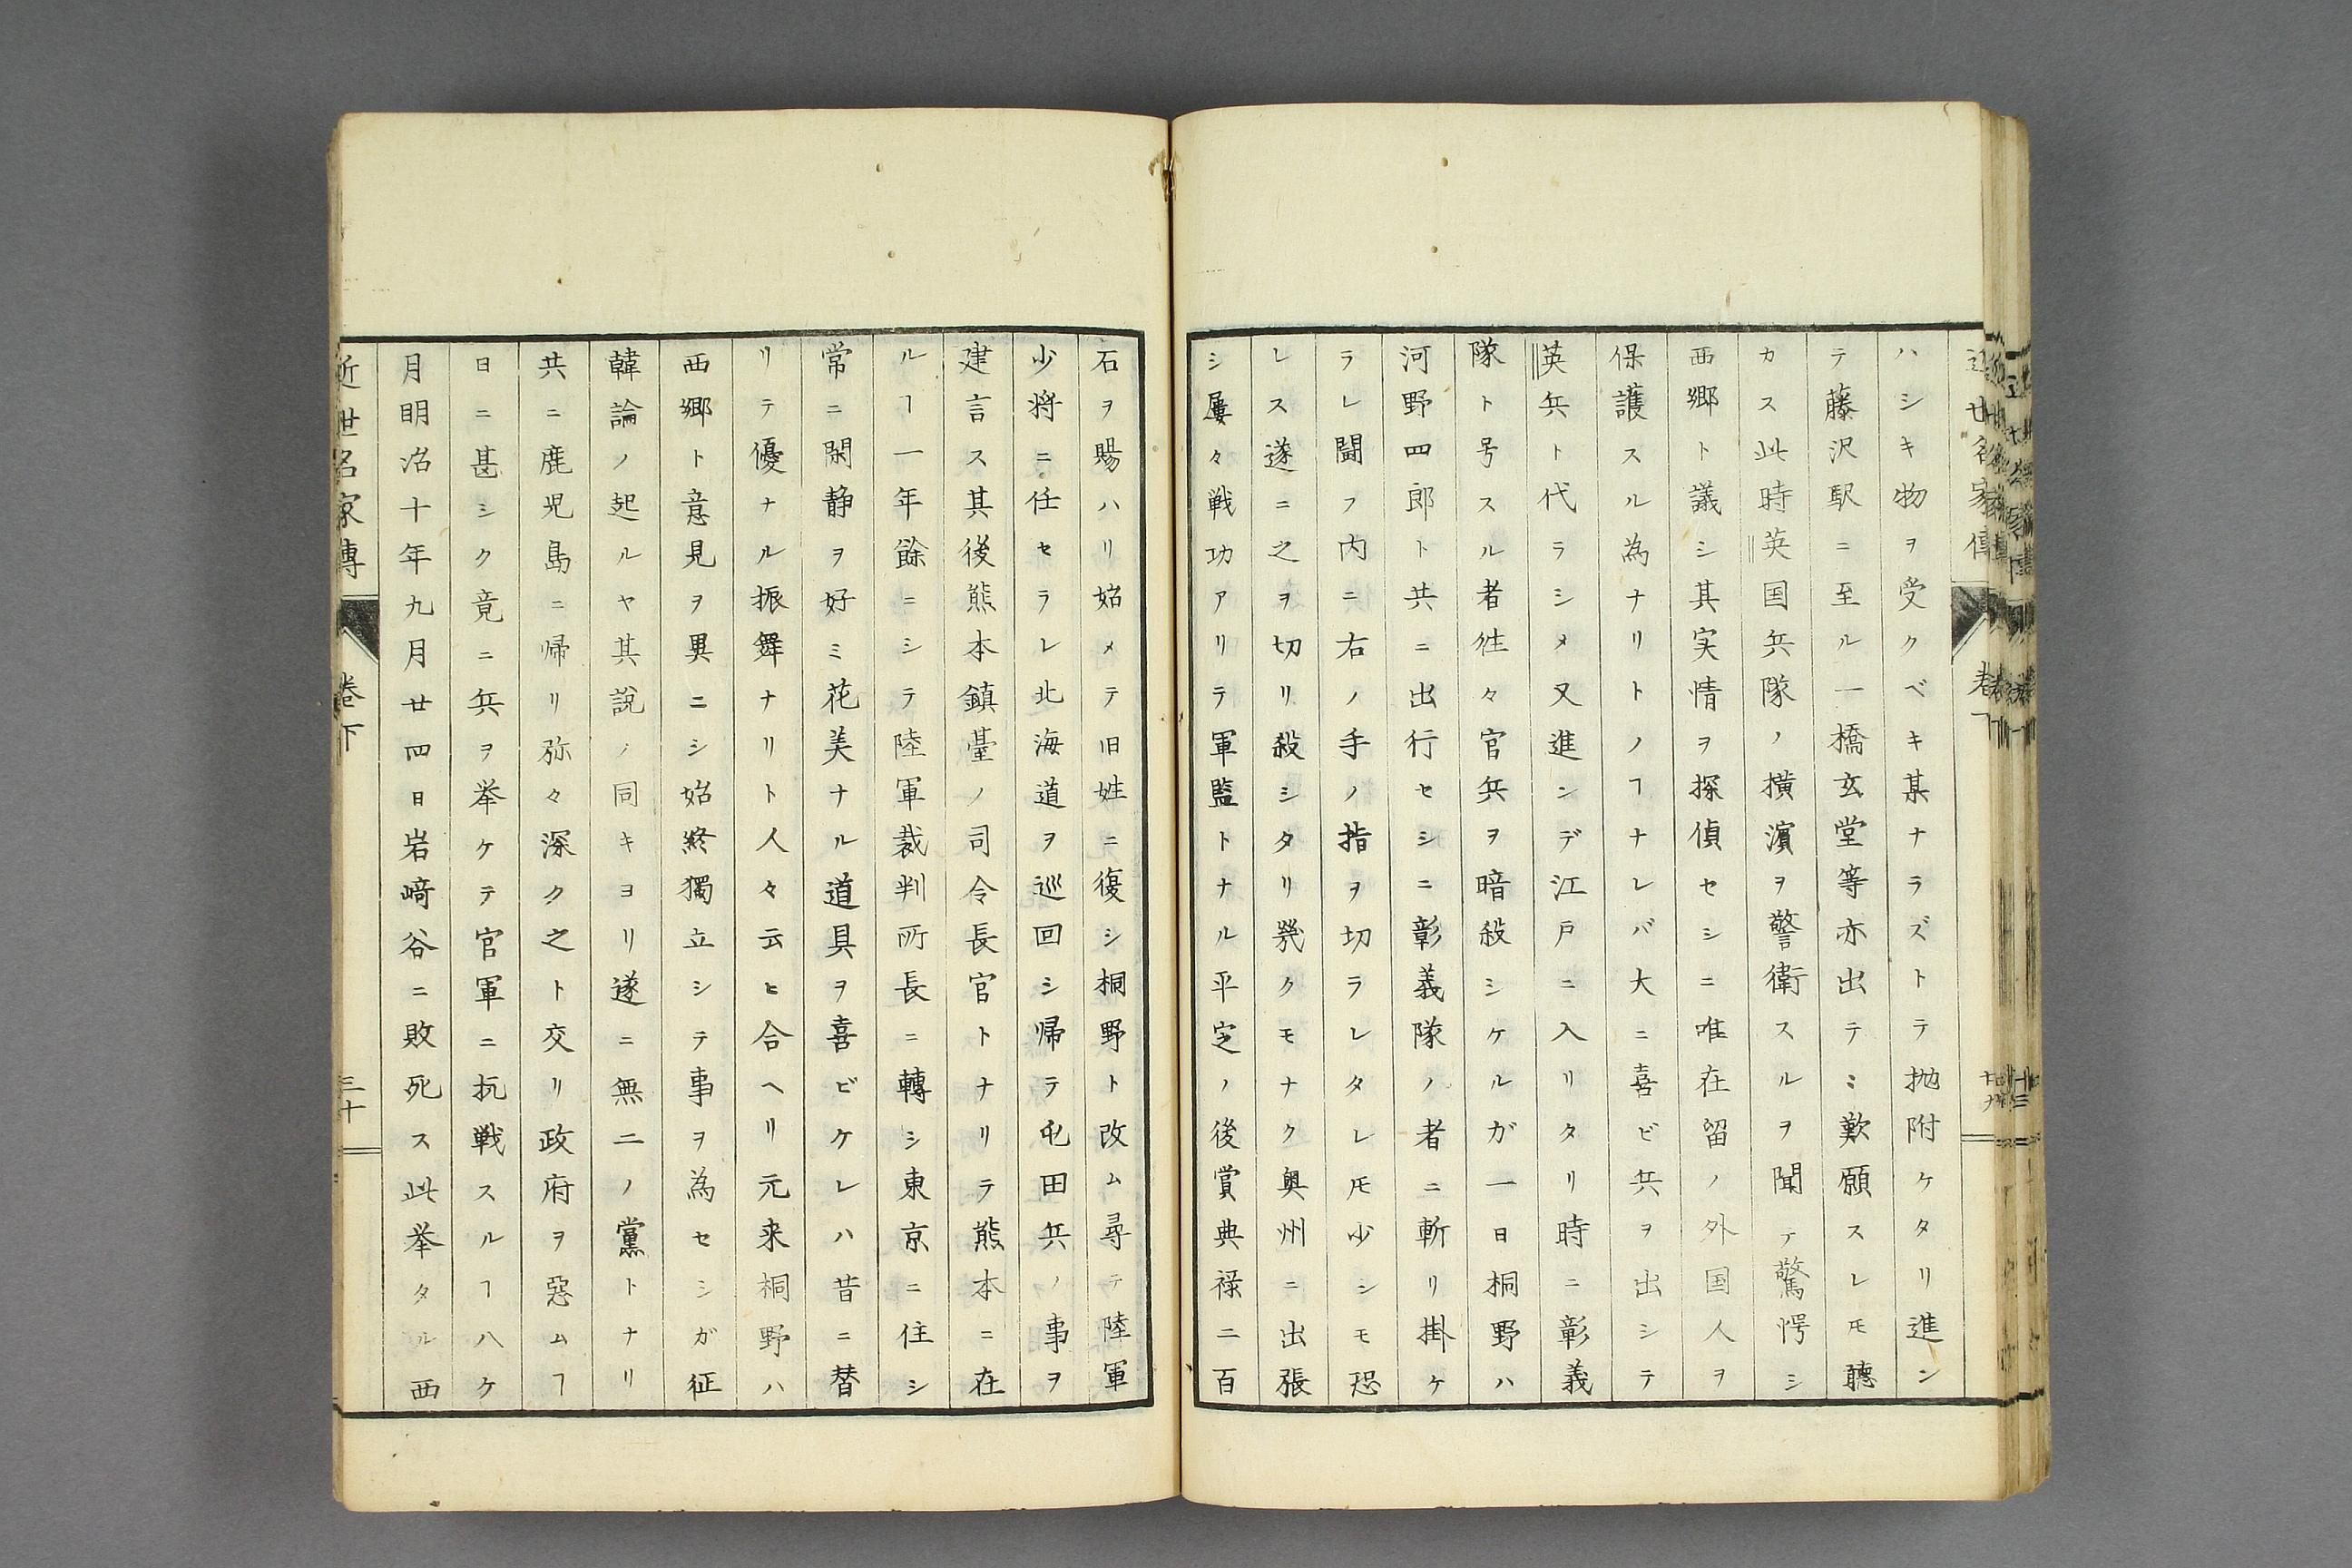 ハシキ物ヲ受クベキ某ナラズトテ抛附ケタリ進ン
テ藤沢駅ニ至ル一橋玄堂等亦出テミ歎願スレㇳモ聽
カス此時英国兵隊ノ横濱ヲ警衛スルヲ聞テ驚愕シ
西郷ト議シ其実情ヲ探偵セシニ唯在留ノ外国人ヲ
保護スル為ナリトノヿナレバ大ニ喜ビ兵ヲ出シテ
英兵ト代ラシメ又進ンデ江戸ニ入リタリ時ニ彰義
隊ト号スル者徃々官兵ヲ暗殺シケルガ一日桐野ハ
河野四郎ト共ニ出行セシニ彰義隊ノ者ニ斬リ掛ケ
ラレ闘フ内ニ右ノ手ノ指ヲ切ラレタレㇳモ少シモ恐
レス遂ニ之ヲ切リ殺シタリ幾クモナク奥州ニ出張
シ屢々戦功アリテ軍監トナル平定ノ後賞典禄二百
石ヲ賜ハリ始メテ旧姓ニ復シ桐野ト改ム尋テ陸軍
少将ニ任セラレ北海道ヲ巡回シ帰テ屯田兵ノ事ヲ
建言ス其後熊本鎮臺ノ司令長官トナリテ熊本ニ在
ルヿ一年餘ニシテ陸軍裁判所長ニ轉シ東京ニ住シ
常ニ閑静ヲ好ミ花美ナル道具ヲ喜ビケレハ昔ニ替
リテ優ナル振舞ナリト人々云ヒ合ヘリ元来桐野ハ
西郷ト意見ヲ異ニシ始終獨立シテ事ヲ為セシガ征
韓論ノ起ルヤ其説ノ同キヨリ遂ニ無二ノ黨トナリ
共ニ鹿児島ニ帰リ弥々深ク之ト交リ政府ヲ惡ムヿ
日ニ甚シク竟ニ兵ヲ挙ケテ官軍ニ抗戦スルヿ八ケ
月明治十年九月廿四日岩﨑谷ニ敗死ス此挙タル西
近世名家傳 卷下 三十